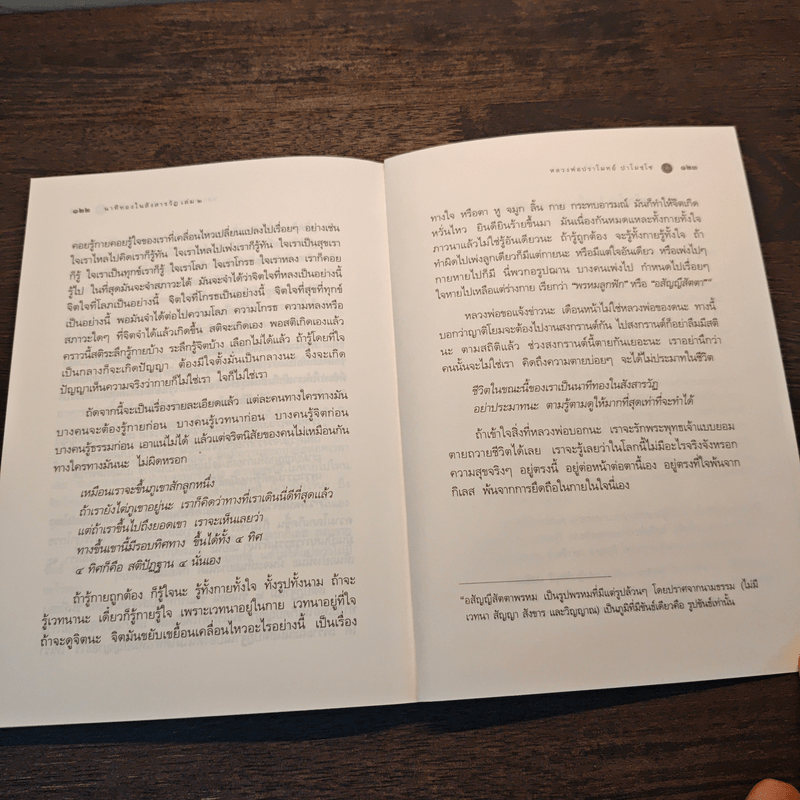 ๑๒๒ นาทีทองในสังสารวัฏ เล่ม ๒
คอยรู้กายคอยรู้ใจของเราที่เคลื่อนไหวเปลี่ยนแปลงไปเรื่อยๆ อย่างเช่น
ใจเราไหลไปคิดเราก็รู้ทัน ใจเราไหลไปเพ่งเราก็รู้ทัน ใจเราเป็นสุขเรา
ก็รู้ ใจเราเป็นทุกข์เราก็รู้ ใจเราโลภ ใจเราโกรธ ใจเราหลง เราก็คอย
รู้ไป ในที่สุดมันจะจำสภาวะได้ มันจะจำได้ว่าจิตใจที่หลงเป็นอย่างนี้
จิตใจที่โลภเป็นอย่างนี้ จิตใจที่โกรธเป็นอย่างนี้ จิตใจที่สุขที่ทุกข์
เป็นอย่างนี้ พอมันจำได้ต่อไปความโลภ ความโกรธ ความหลงหรือ
สภาวะใดๆ ที่จิตจำได้แล้วเกิดขึ้น สติจะเกิดเอง พอสติเกิดเองแล้ว
คราวนี้สติระลึกรู้กายบ้าง ระลึกรู้จิตบ้าง เลือกไม่ได้แล้ว ถ้ารู้โดยที่ใจ
เป็นกลางก็จะเกิดปัญญา ต้องมีใจตั้งมั่นเป็นกลางนะ จึงจะเกิด
ปัญญาเห็นความจริงว่ากายก็ไม่ใช่เรา ใจก็ไม่ใช่เรา
ถัดจากนี้จะเป็นเรื่องรายละเอียดแล้ว แต่ละคนทางใครทางมัน
บางคนจะต้องรู้กายก่อน บางคนรู้เวทนาก่อน บางคนรู้จิตก่อน
บางคนรู้ธรรมก่อน เอาแน่ไม่ได้ แล้วแต่จริตนิสัยของคนไม่เหมือนกัน
ทางใครทางมันนะ ไม่ผิดหรอก
เหมือนเราจะขึ้นภูเขาสักลูกหนึ่ง
ถ้าเรายังไต่ภูเขาอยู่นะ เราก็คิดว่าทางที่เราเดินนี่ดีที่สุดแล้ว
แต่ถ้าเราขึ้นไปถึงยอดเขา เราจะเห็นเลยว่า
ทางขึ้นเขานี้มีรอบทิศทาง ขึ้นได้ทั้ง ๔ ทิศ
๔ ทิศก็คือ สติปัฏฐาน ๔ นั่นเอง
ถ้ารู้กายถูกต้อง ก็รู้ใจนะ รู้ทั้งกายทั้งใจ ทั้งรูปทั้งนาม ถ้าจะ
รู้เวทนานะ เดี๋ยวก็รู้กายรู้ใจ เพราะเวทนาอยู่ในกาย เวทนาอยู่ที่ใจ
ถ้าจะดูจิตนะ จิตมันขยับเขยื้อนเคลื่อนไหวอะไรอย่างนี้ เป็นเรื่อง
หลวงพ่อปราโมทย์ ปาโมชฺโช ๑๒๓
ทางใจ หรือตา หู จมูก ลิ้น กาย กระทบอารมณ์ มันก็ทำให้จิตเกิด
หวั่นไหว ยินดียินร้ายขึ้นมา มันเนื่องกันหมดแหละทั้งกายทั้งใจ
ภาวนาแล้วไม่ใช่รู้อันเดียวนะ ถ้ารู้ถูกต้อง จะรู้ทั้งกายรู้ทั้งใจ ถ้า
ทำผิดไปเพ่งลูกเดียวก็มีแต่กายนะ หรือมีแต่ใจอันเดียว หรือเพ่งไปๆ
กายหายไปก็มี นี่พวกอรูปฌาน บางคนเพ่งไป กำหนดไปเรื่อยๆ
ใจหายไปเหลือแต่ร่างกาย เรียกว่า “พรหมลูกฟัก” หรือ “อสัญญีสัตตา”*
หลวงพ่อขอแจ้งข่าวนะ เดือนหน้าไม่ใช่หลวงพ่องดนะ ทางนี้
บอกว่าญาติโยมจะต้องไปงานสงกรานต์กัน ไปสงกรานต์ก็อย่าลืมมีสติ
นะ ตามสถิติแล้ว ช่วงสงกรานต์นี้ตายกันเยอะนะ เราอย่านึกว่า
คนนั้นจะไม่ใช่เรา คิดถึงความตายบ่อยๆ จะได้ไม่ประมาทในชีวิต
ชีวิตในขณะนี้ของเราเป็นนาทีทองในสังสารวัฏ
อย่าประมาทนะ ตามรู้ตามดูให้มากที่สุดเท่าที่จะทำได้
ถ้าเข้าใจสิ่งที่หลวงพ่อบอกนะ เราจะรักพระพุทธเจ้าแบบยอม
ตายถวายชีวิตได้เลย เราจะรู้เลยว่าในโลกนี้ไม่มีอะไรจริงจังหรอก
ความสุขจริงๆ อยู่ตรงนี้ อยู่ต่อหน้าต่อตานี้เอง อยู่ตรงที่ใจพ้นจาก
กิเลส พ้นจากการยึดถือในกายในใจนี่เอง
*อสัญญีสัตตาพรหม เป็นรูปพรหมที่มีแต่รูปล้วนๆ โดยปราศจากนามธรรม (ไม่มี
เวทนา สัญญา สังขาร และวิญญาณ) เป็นภูมิที่มีขันธ์เดียวคือ รูปขันธ์เท่านั้น